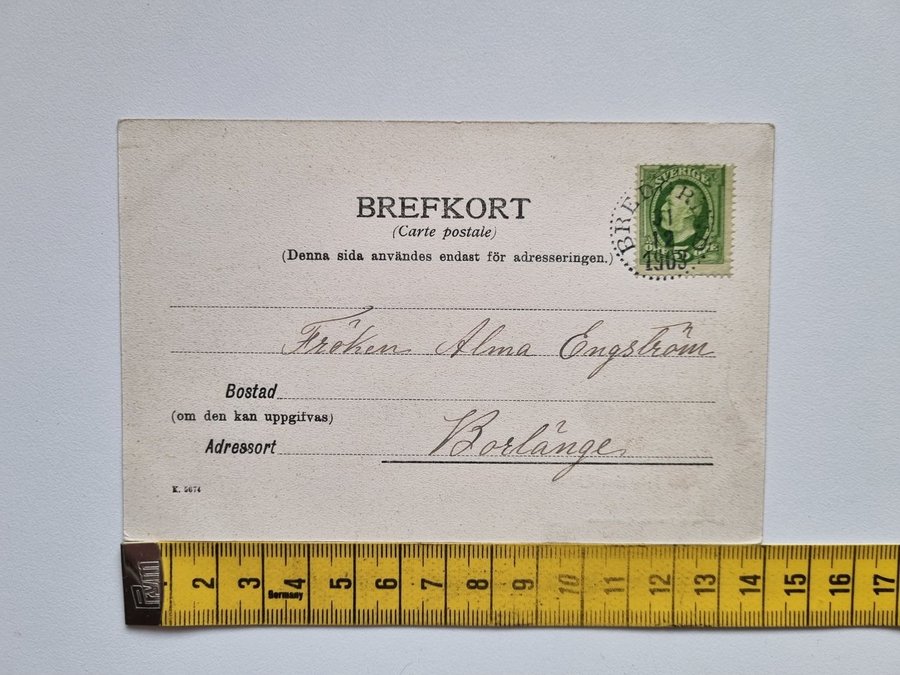 BREFKORT
(Carte postale)
(Denna sida användes endast för adresseringen.)
SVERIGE
1903
Fröken Alma Engström
Bostad
(om den kan uppgifvas)
Borlänge
Adressort
K. 5674
2 3 4 5 6 7 8 9 10 11 12 13 14 15 16 17
Germany